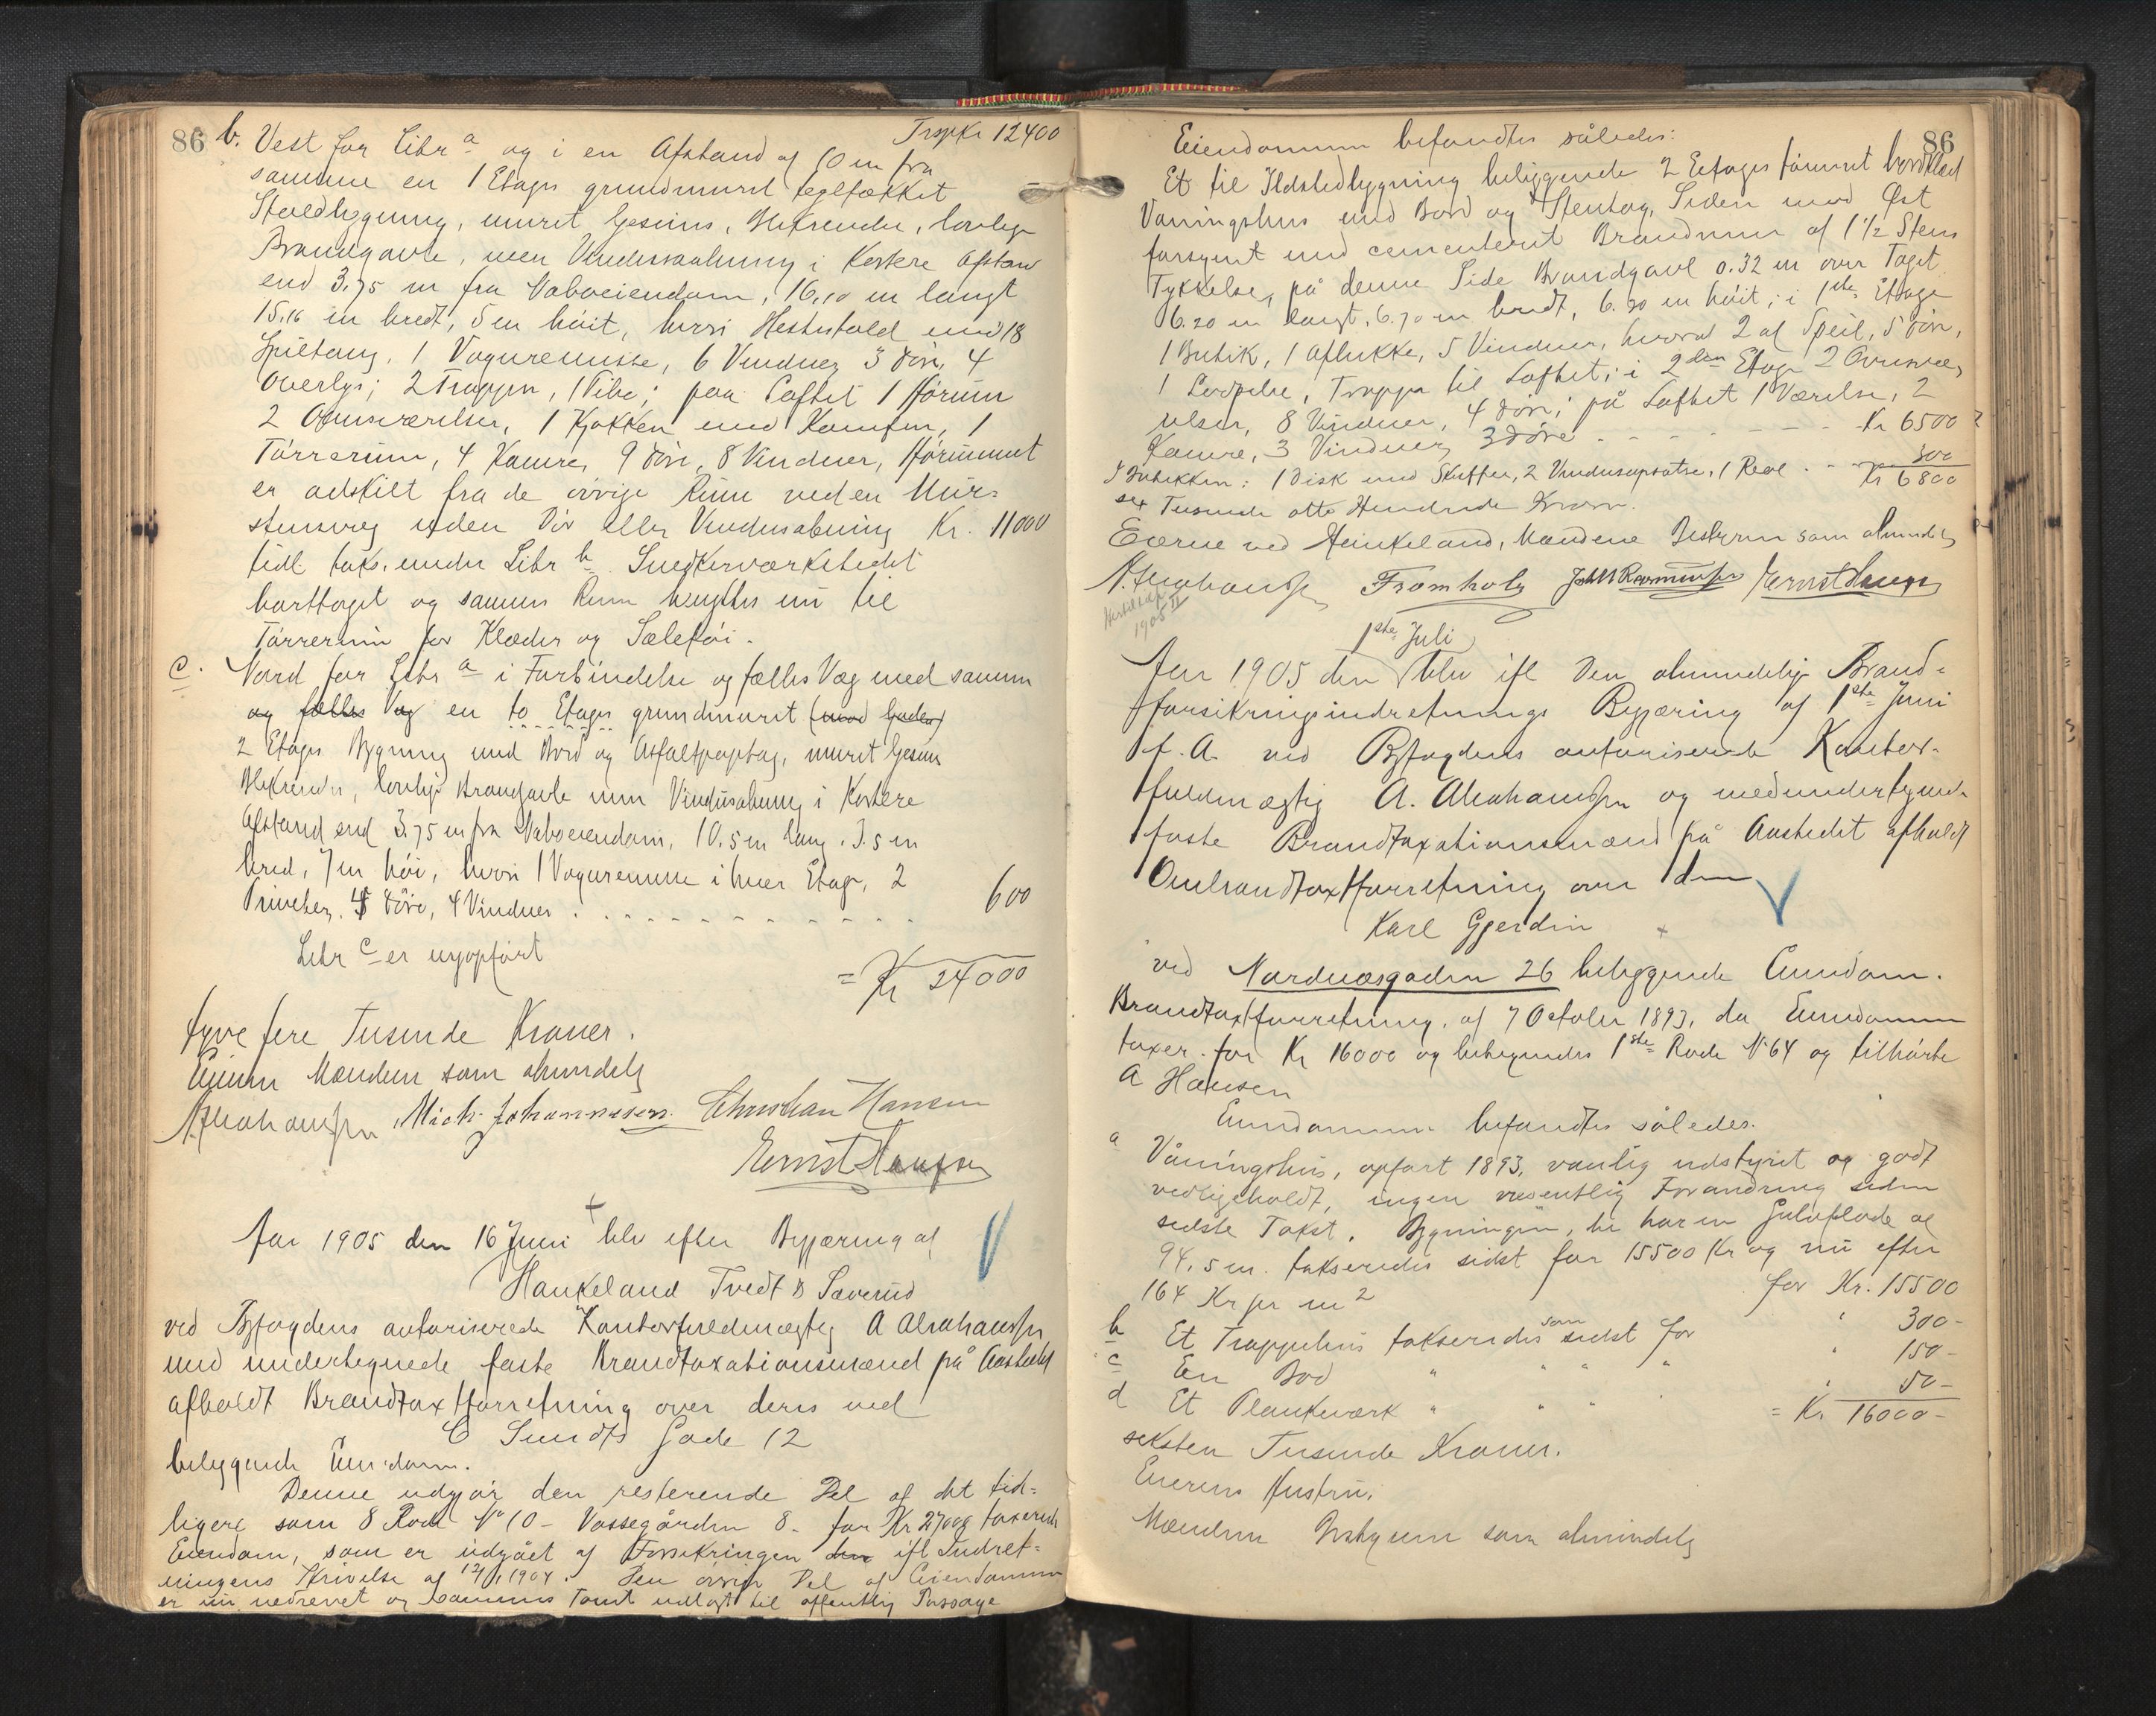 86
Trspkr 12400
b. Vest for Litr a og i en Afstand af 10 m fra
samme en 1 Etages grundmuret tegltækket
Staldbygning, muret Gesims, Blikrender, lovlige
Brandgavle, men Vinduesaabning i kortere Afstand
end 3.75 m fra Naboeiendom, 16,10 m langt
15.16 m bredt, 5 m høit, hvori Hestestald med 18
Spiltaug, 1 Vognremisse, 6 Vinduer, 3 Døre, 4
Overlys; 2 Trapper, 1 Pibe; paa Loftet 1 Hørum
2 Ovnsværelser, 1 Kjøkken med Komfur, 1
Tørrerum, 4 Kamre, 9 Døre, 8 Vinduer, Hørummet
er adskilt fra de øvrige Rum ved en Mur-
stensvæg uden Dør eller Vinduesabning Kr. 11000
tidl. taks. under Litr b. Snedkerværkstedet
borttaget og sammes Rum benyttes nu til
Tørrerum for Klæder og Seletøi.
c. Nord for Litr a i Forbindelse og fælles Væg med samme
og fælles Væg en to Etages grundmuret (mod Gaden)
2 Etages Bygning med Bord og Asfaltpaptag, muret Gesims
Blikrender, lovlige Brandgavle men Vinduesabning i kortere
Afstand end 3.75 m fra Naboeiendom, 10.5 m lang, 3.5 m
bred, 7 m høi, hvori 1 Vognremisse i hver Etage, 2
Priveter, 4 Døre, 4 Vinduer . . . . . . . . . . . 600
Litr c er nyopført
= Kr 24000
fyve fire Tusinde Kroner.
Eieren Mændene som almindelig
A. Abrahamssen Mich. Johannesen. Christian Hansen
Ernst Hansen
Aar 1905 den 16 Juni blev efter Begjæring af
Haukeland Tvedt & Sæverud
ved Byfogdens autoriserede Kontorfuldmægtig A Abrahamssen
med undertegnede faste Brandtaxationsmænd på Aastedet
afholdt Brandtaxtforretning over deres ved
C Sundts Gade 12
beliggende Eiendom.
Denne udgjør den resterende Del af det tid-
ligere som 8 Rode No 10 - Vossegården 8. for Kr 27000 taxerede
Eiendom, som er udgået af Forsikringen den ifl Indret-
ningens Skrivelse af 12/1 1904. Den øvrige Del af Eiendommen
er nu nedrevet og sammes Tomt udlagt til offentlig Passage
86
Eiendommen befandtes således:
Et til Ildstedbygning beliggende 2 Etages tømret bordklæd
Vaningshus med Bord og Stentag, Siden mod Øst
forsynet med cementeret Brandmur af 1 1/2 Stens
Tykkelse, på denne Side Brandgavl 0.32 m over Taget
6.20 m langt, 6.70 m bredt, 6.20 m høit; i 1ste Etage
1 Butik, 1 Aflukke, 5 Vinduer, hvoraf 2 af Speil, 5 Døre,
1 Trappe til Loftet; i 2den Etage 2 Ovnsvæ-
relser, 8 Vinduer, 4 Døre; på Loftet 1 Værelse, 2
Kamre, 3 Vinduer, 3 Døre - - - - - - - Kr 6500
I Butikken: 1 Disk med Skuffer, 2 Vinduesopsatse, 1 Reol . - 300
Kr 6800
sex Tusinde otte Hundrede Kroner.
Eierne ved Haukeland, Mændene Bestyrer som almindelig
A. Abrahamssen Fromholz Joh N Rasmussen Ernst Hansen
1905 II
1ste Juli
Aar 1905 den blev ifl Den almindelige Brand-
forsikringsindretnings Begjæring af 1ste Juni
f. A. ved Byfogdens autoriserede Kontor-
fuldmægtig A. Abrahamssen og medundertegnede
faste Brandtaxationsmænd på Aastedet afholdt
Ombrandtaxtforretning over den
Karl Gjerdin
ved Nordnæsgaden 26 beliggende Eiendom.
Brandtaxtforretning af 7 October 1893, da Eiendommen
taxer. for Kr 16000 og betegnedes 1ste Rode No 64 og tilhørte
A Hansen
Eiendommen befandtes således.
a Våningshus, opført 1893, vanlig udstyret og godt
vedligeholdt, ingen væsentlig Forandring siden
sidste Takst. Bygningen, der har en Gulvflade af
94,5 m. takseredes sidst for 15500 Kr og nu efter
164 Kr pr m2 for Kr. 15500
b Et Trappehus takseredes som sidst for " 300-
c En Bod " " " " " 150-
d Et Plankeværk " " " " 50-
= Kr. 16000-
seksten Tusinde Kroner.
Eierens Hustru.
Mændene Bestyrer som almindelig